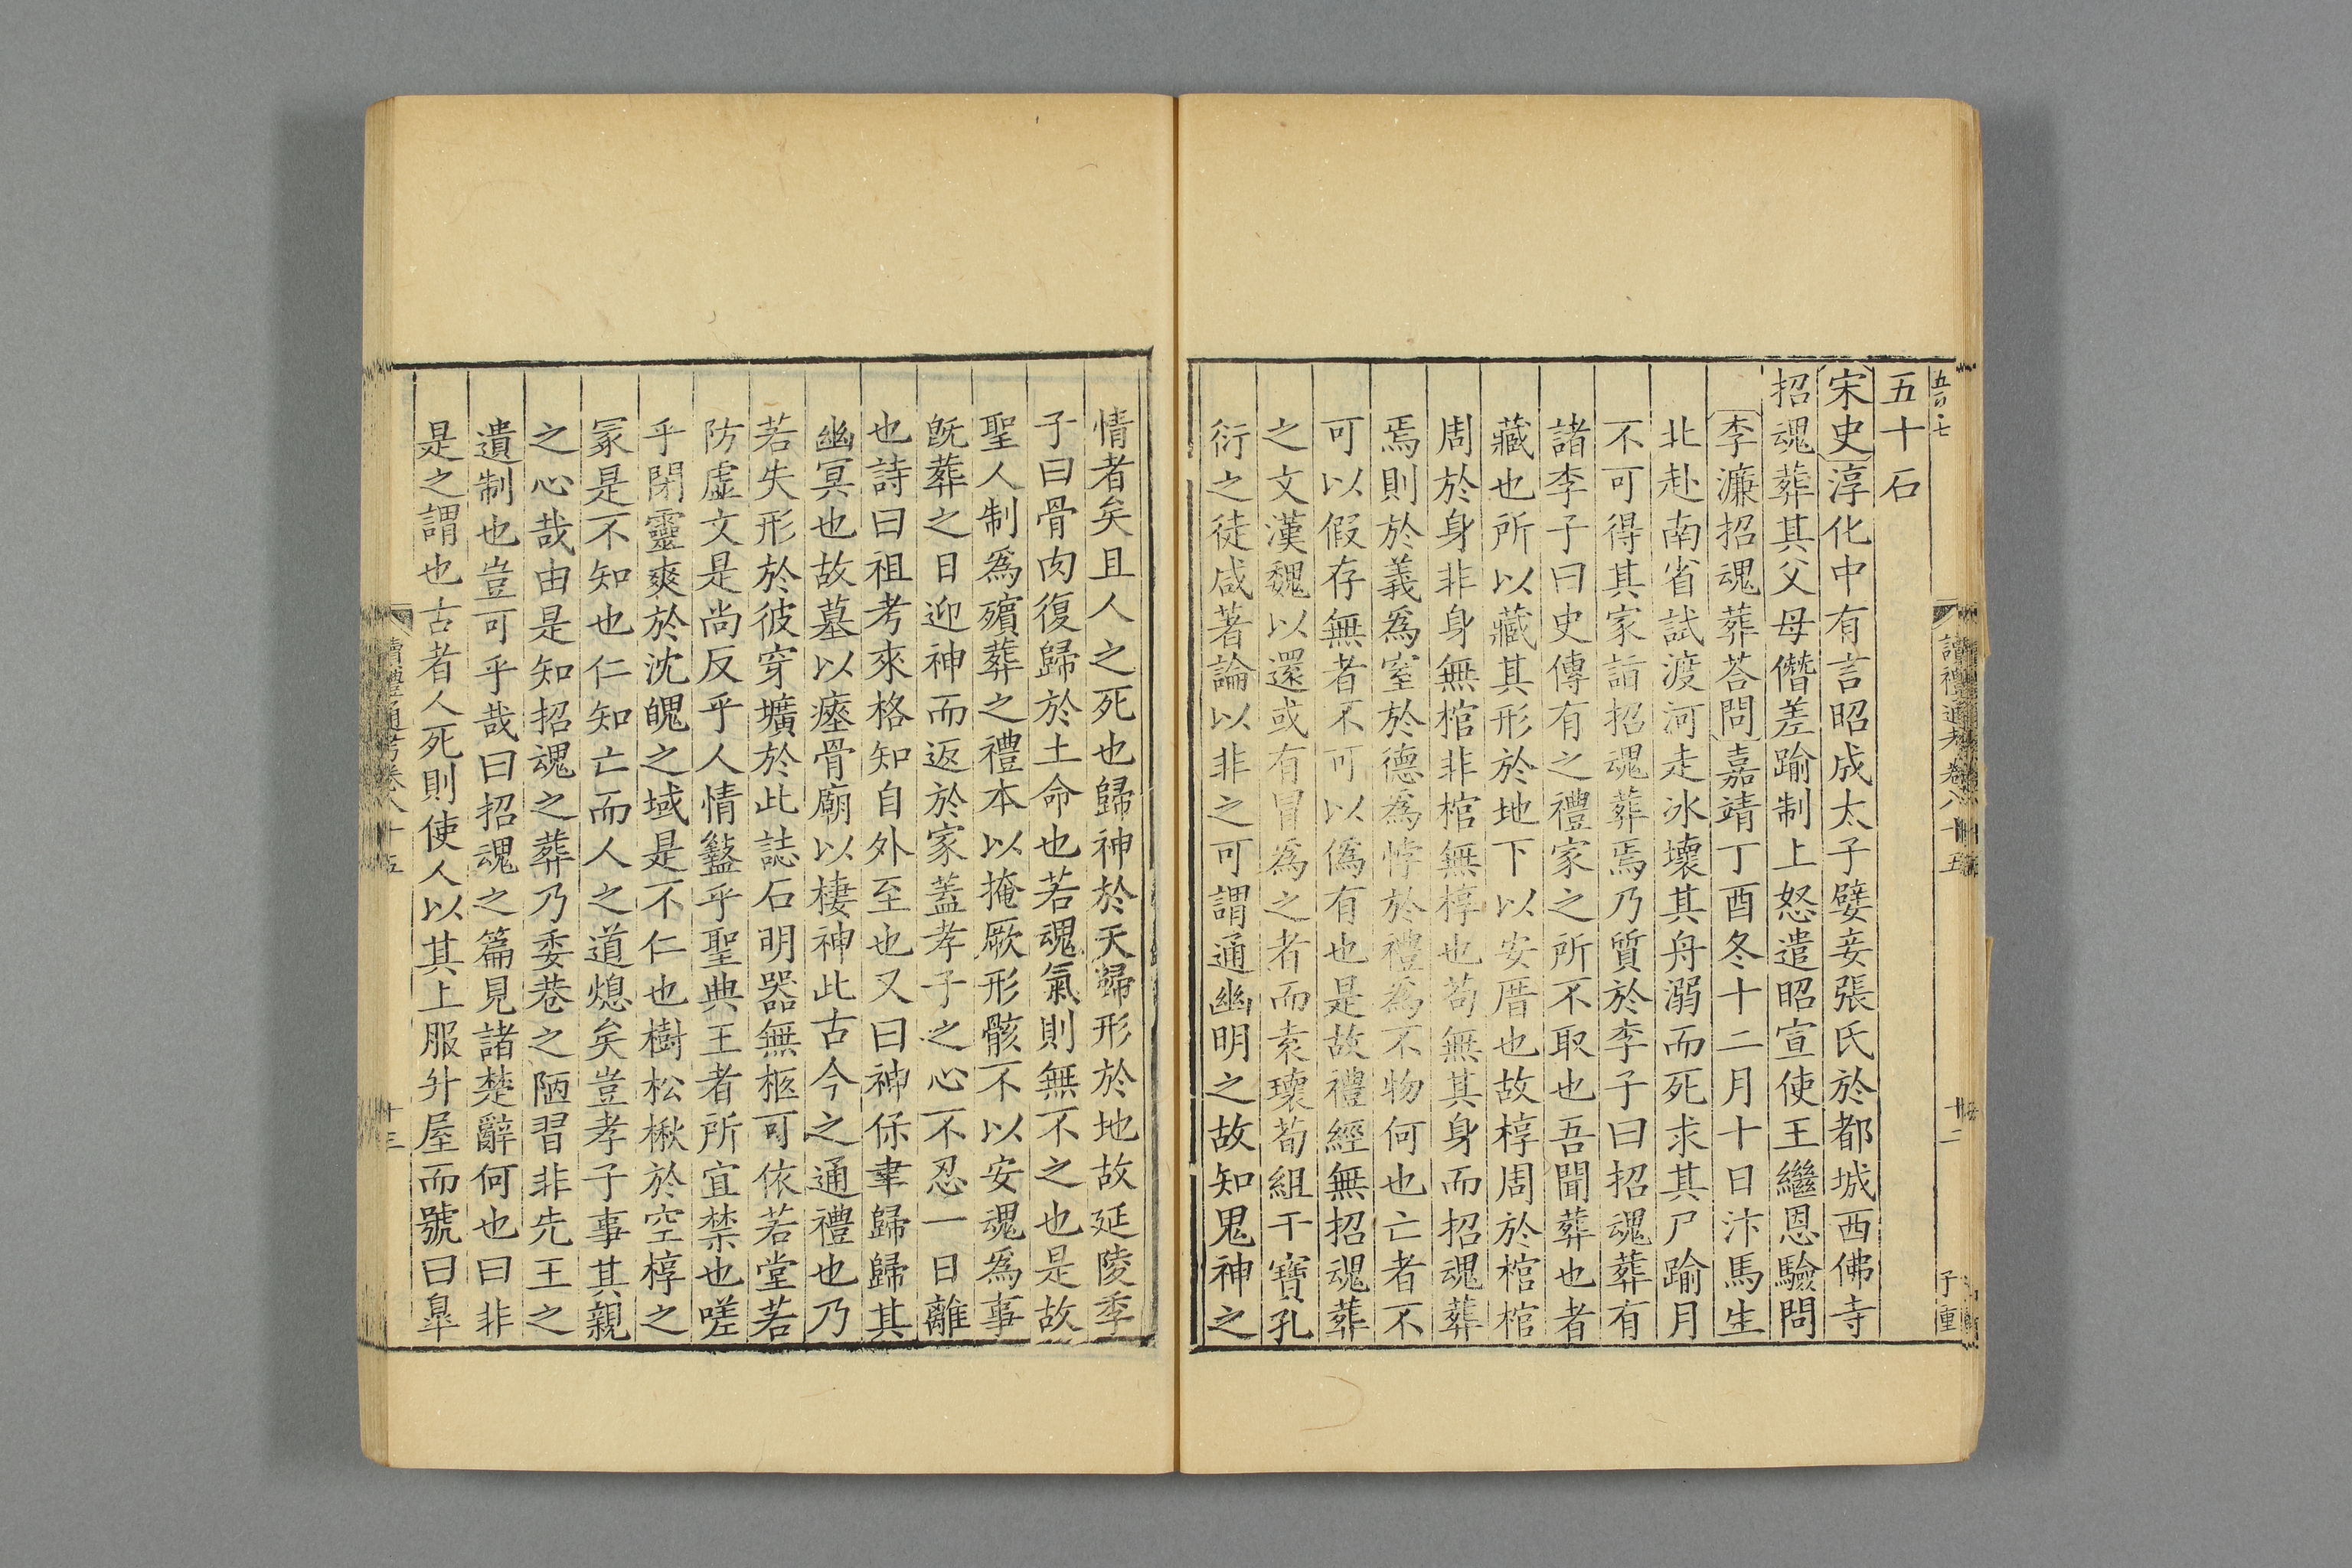 五百七
讀禮通考卷八十五
十二
子重
五十石
宋史淳化中有言昭成太子嬖妾張氏於都城西佛寺
招魂葬其父母僭差踰制上怒遣昭宣使王繼恩驗問
李濂招魂葬荅問嘉靖丁酉冬十二月十日汴馬生
北赴南省試渡河走冰壞其舟溺而死求其尸踰月
不可得其家詣招魂葬焉乃質於李子曰招魂葬有
諸李子曰史傳有之禮家之所不取也吾聞葬也者
藏也所以藏其形於地下以安厝也故椁周於棺棺
周於身非身無棺非棺無椁也苟無其身而招魂葬
焉則於義爲窒於德爲悖於禮爲不物何也亡者不
可以假存無者不可以僞有也是故禮經無招魂葬
之文漢魏以還或有冒爲之者而袁瓌荀組干寶孔
衍之徒咸著論以非之可謂通幽明之故知鬼神之
情者矣且人之死也歸神於天歸形於地故延陵季
子曰骨肉復歸於土命也若魂氣則無不之也是故
聖人制爲殯葬之禮本以掩厥形骸不以安魂爲事
旣葬之日迎神而返於家蓋孝子之心不忍一日離
也詩曰祖考來格知自外至也又曰神保聿歸歸其
幽冥也故墓以瘞骨廟以棲神此古今之通禮也乃
若失形於彼穿壙於此誌石明器無柩可依若堂若
防虛文是尚反乎人情盭乎聖典王者所宜禁也嗟
乎閉靈爽於沈魄之域是不仁也樹松楸於空椁之
冢是不知也仁知亡而人之道熄矣豈孝子事其親
之心哉由是知招魂之葬乃委巷之陋習非先王之
遺制也豈可乎哉曰招魂之篇見諸楚辭何也曰非
是之謂也古者人死則使人以其上服升屋而號曰臯
讀禮通考卷八十五
十三